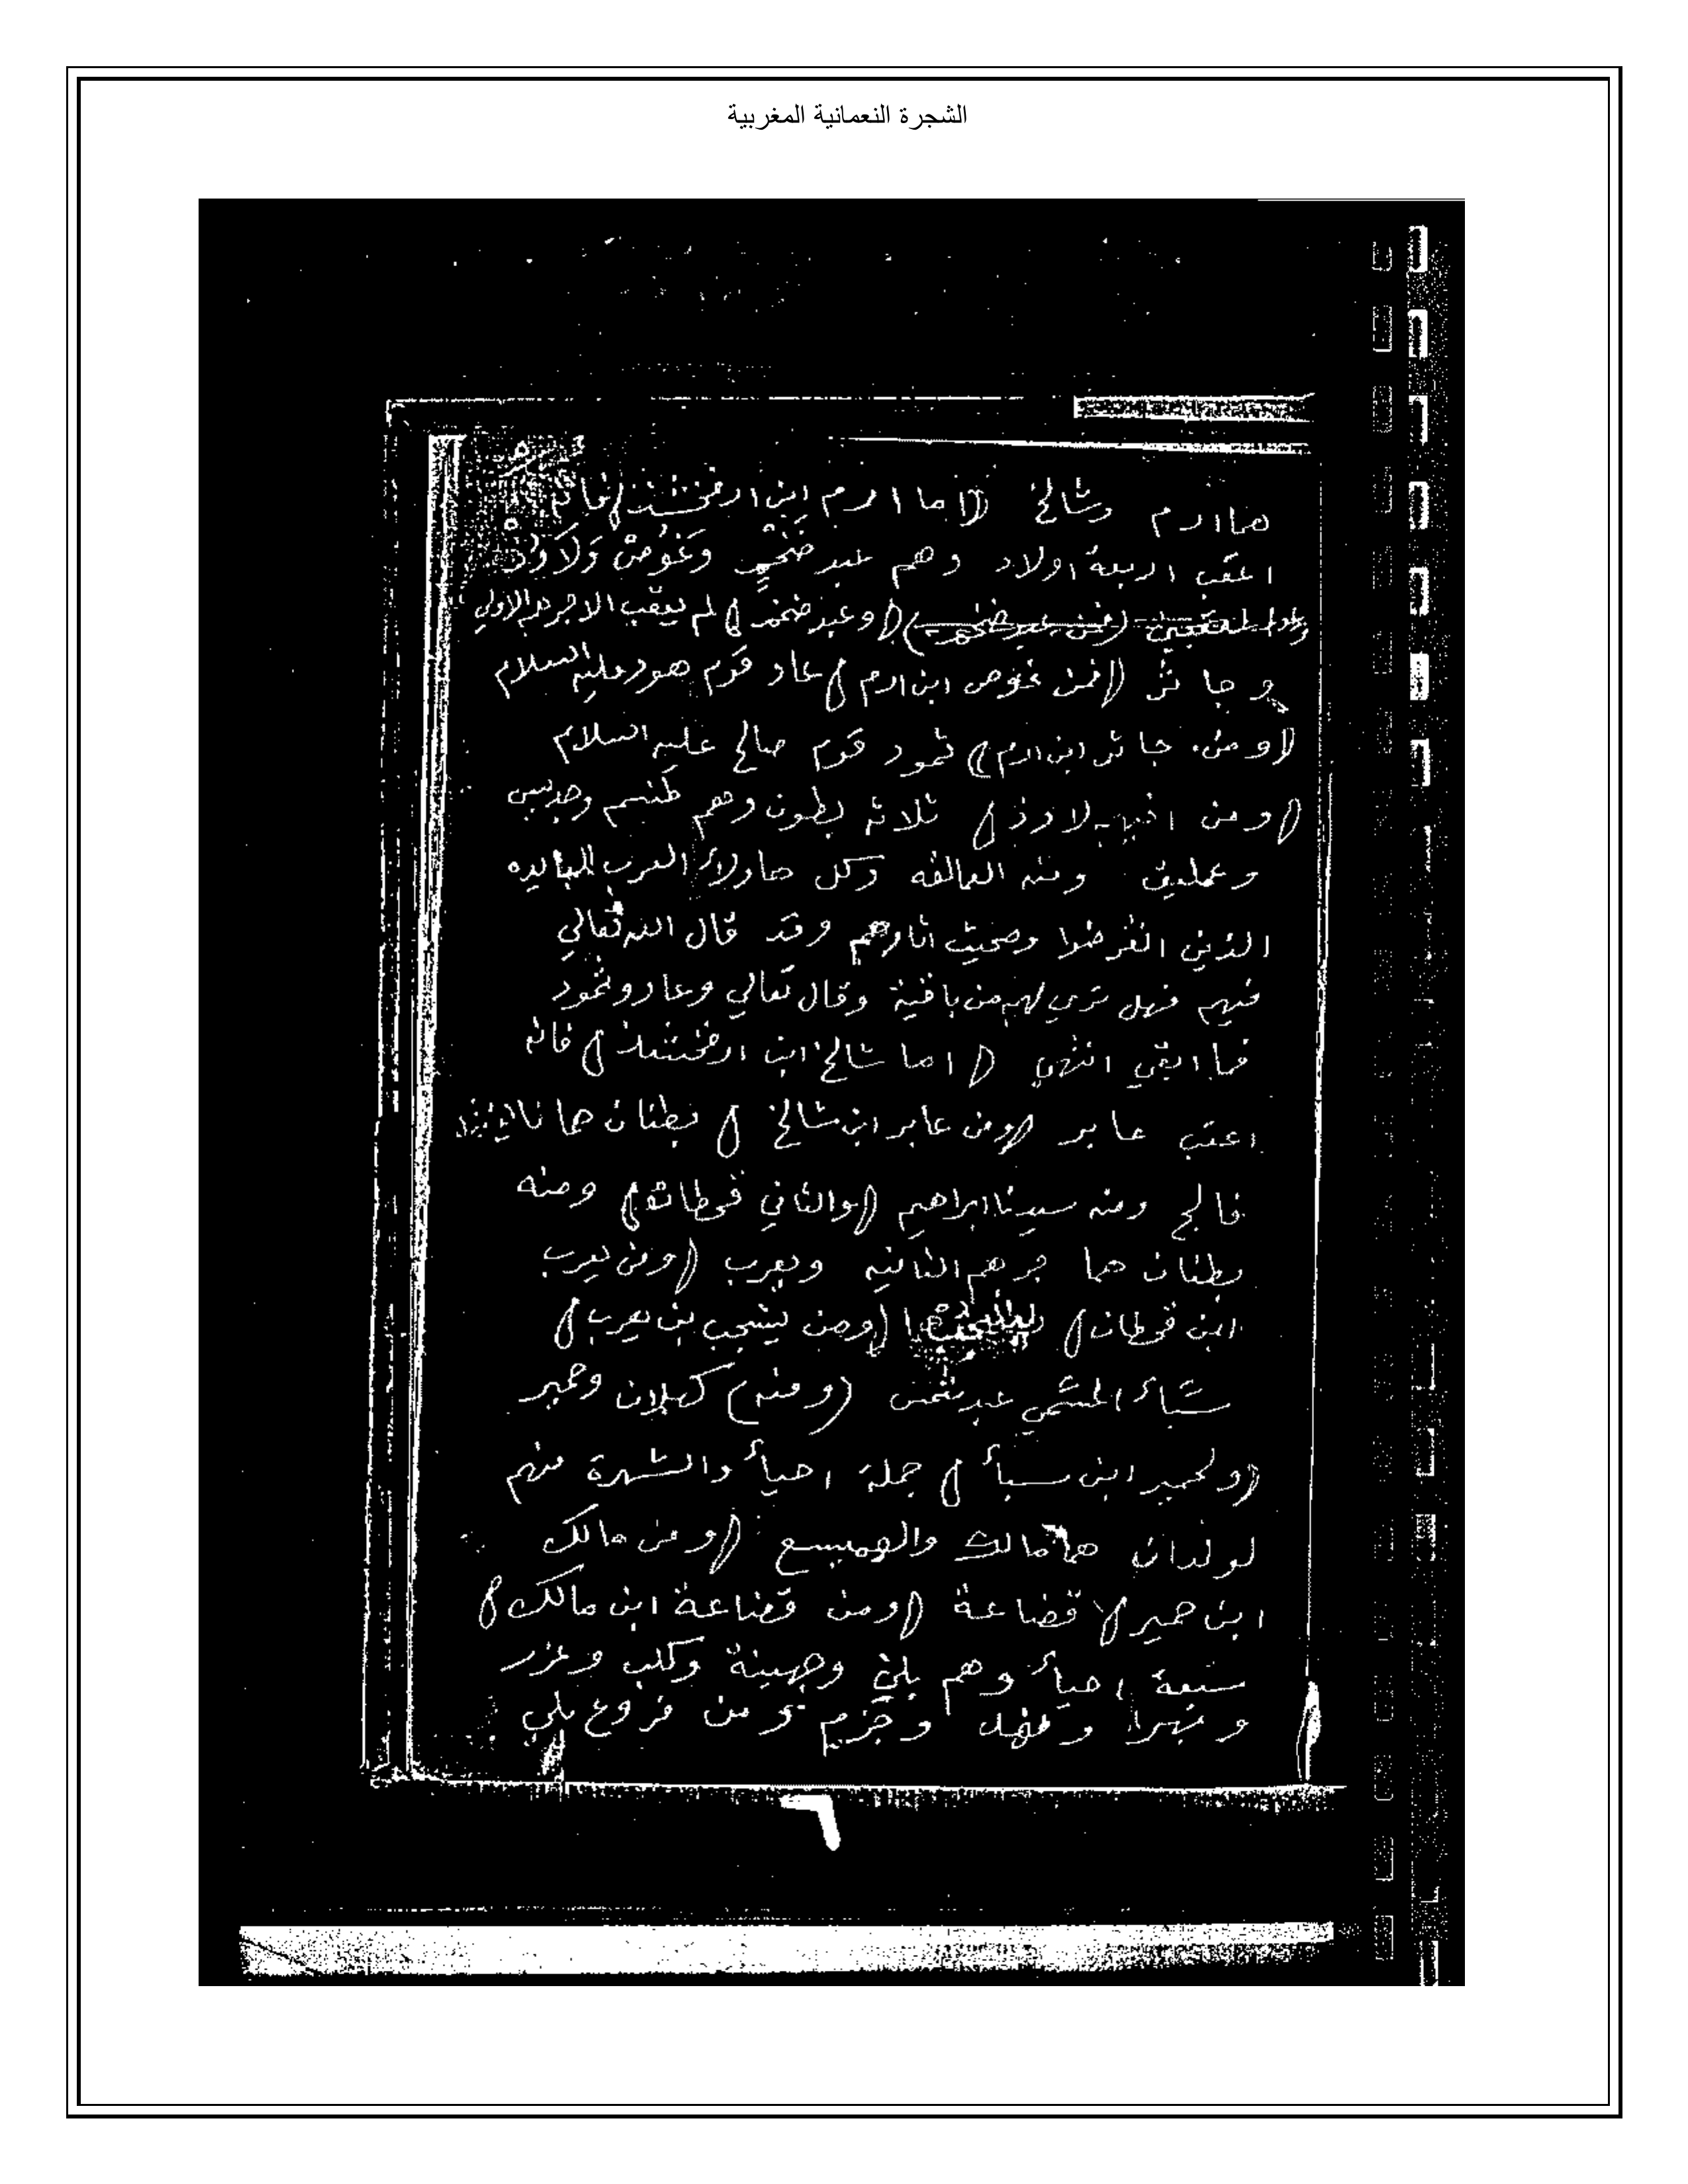 الشجرة النعمانية المغربية
هما ارم وشالخ (اما ارم ابن ارفخشذ) فانه
اعقب اربعة اولاد وهم عبد ضخم وغوص ولاوذ
(وعبد ضخم) لم يعقب الا جرهم الاولي
وجاثر (فمن غوص ابن ارم) عاد قوم هود عليه السلام
(ومن جاثر ابن ارم) ثمود قوم صالح عليه السلام
(ومن لاوذ) ثلاثة بطون وهم طسم وجديس
وعمليق ومنه العمالقه وكل هاولاء العرب البايده
الذين انقرضوا ومحيت اثارهم وقد قال الله تعالي
فيهم فهل تري لهم من باقية وقال تعالي وعاد وثمود
فما ابقي انتهي (اما شالخ ابن ارفخشذ) فانه
اعقب عابر (ومن عابر ابن شالخ) بطنان هما
فالج ومنه سيدنا ابراهيم (والثاني قحطان) ومنه
بطنان هما جرهم الثانيه ويعرب (ومن يعرب
ابن قحطان) (ومن يشجب بن يعرب)
سباء المسمي عبد شمس (ومنه) كهلان وحمير
(ولحمير ابن سبأ) جملة احياء والشهرة منهم
لولدان هما مالك والهميسع (ومن مالك
ابن حمير) قضاعة (ومن قضاعة ابن مالك)
سبعة احياء وهم بلي وجهينة وكلب وعزر
وبهرا ونهد وجرم ومن فروع بلي
٦